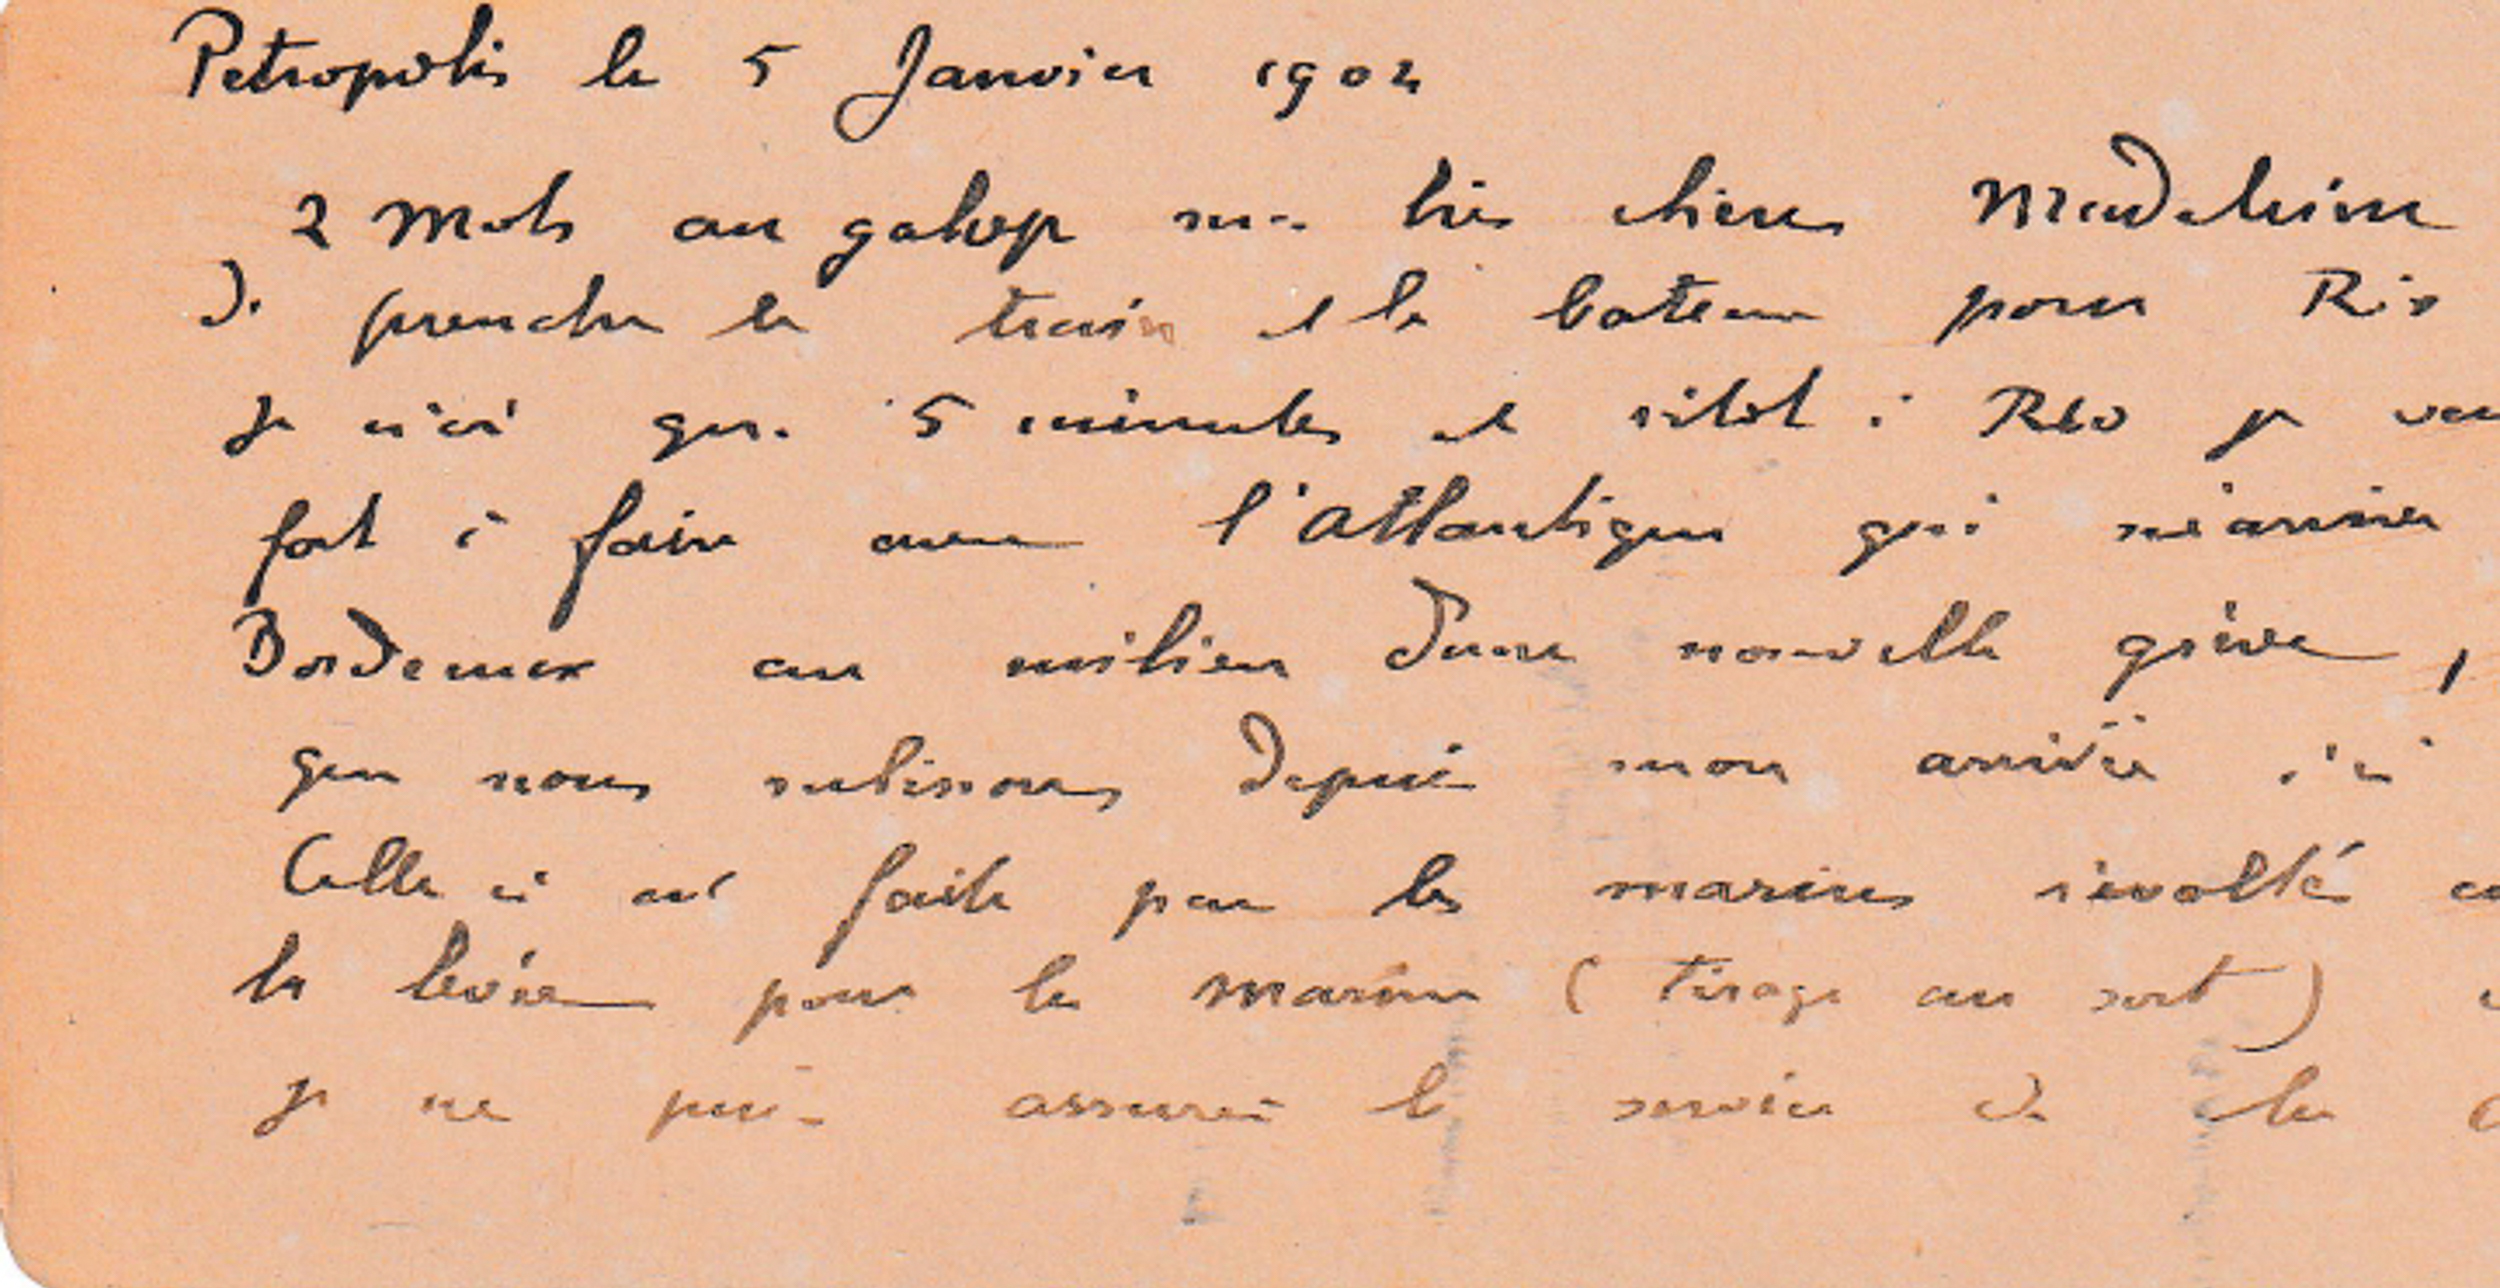 Petropolis le 5 Janvier 1904
2 Mots au galop ma très chère Madeleine
de prendre le train et le bateau pour Rio
je n'ai que 5 minutes et sitot à Rio je
fort à faire avec l'Atlantique qui m'arrive
Bordeaux au milieu d'une nouvelle grève,
que nous subissons depuis mon arrivée ici
Celle ci est faite par les marins révolté
la levée pour la marine (tirage au sort)
je ne puis assurer le service de la